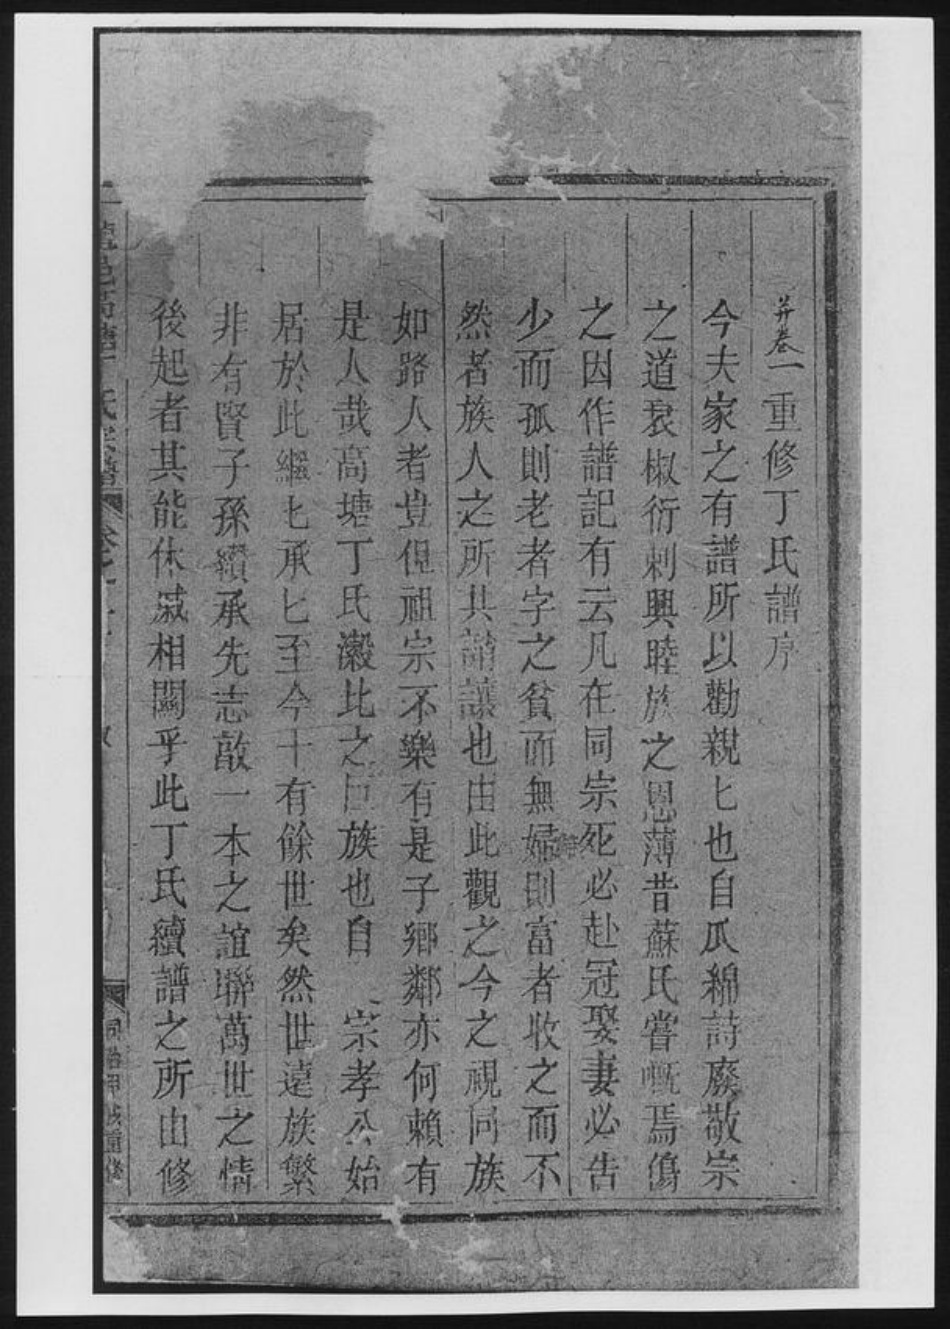 并卷一重修丁氏譜序
今夫家之有譜所以勸親匕也自瓜綿詩廢敬宗
之道衰椒衍刺興睦族之恩薄昔蘇氏嘗慨焉傷
之因作譜記有云凡在同宗死必赴冠娶妻必告
少而孤則老者字之貧而無婦則富者收之而不
然者族人之所共誚讓也由此觀之今之視同族
如路人者豈但祖宗不樂有是子鄉鄰亦何賴有
是人哉高塘丁氏瀫比之巨族也自 宗孝公始
居於此繼匕承匕至今十有餘世矣然世遠族繁
非有賢子孫纘承先志敢一本之誼聯萬世之情
後起者其能休戚相關乎此丁氏續譜之所由修
邑高塘丁氏宗譜 卷之一 同治甲戌重修